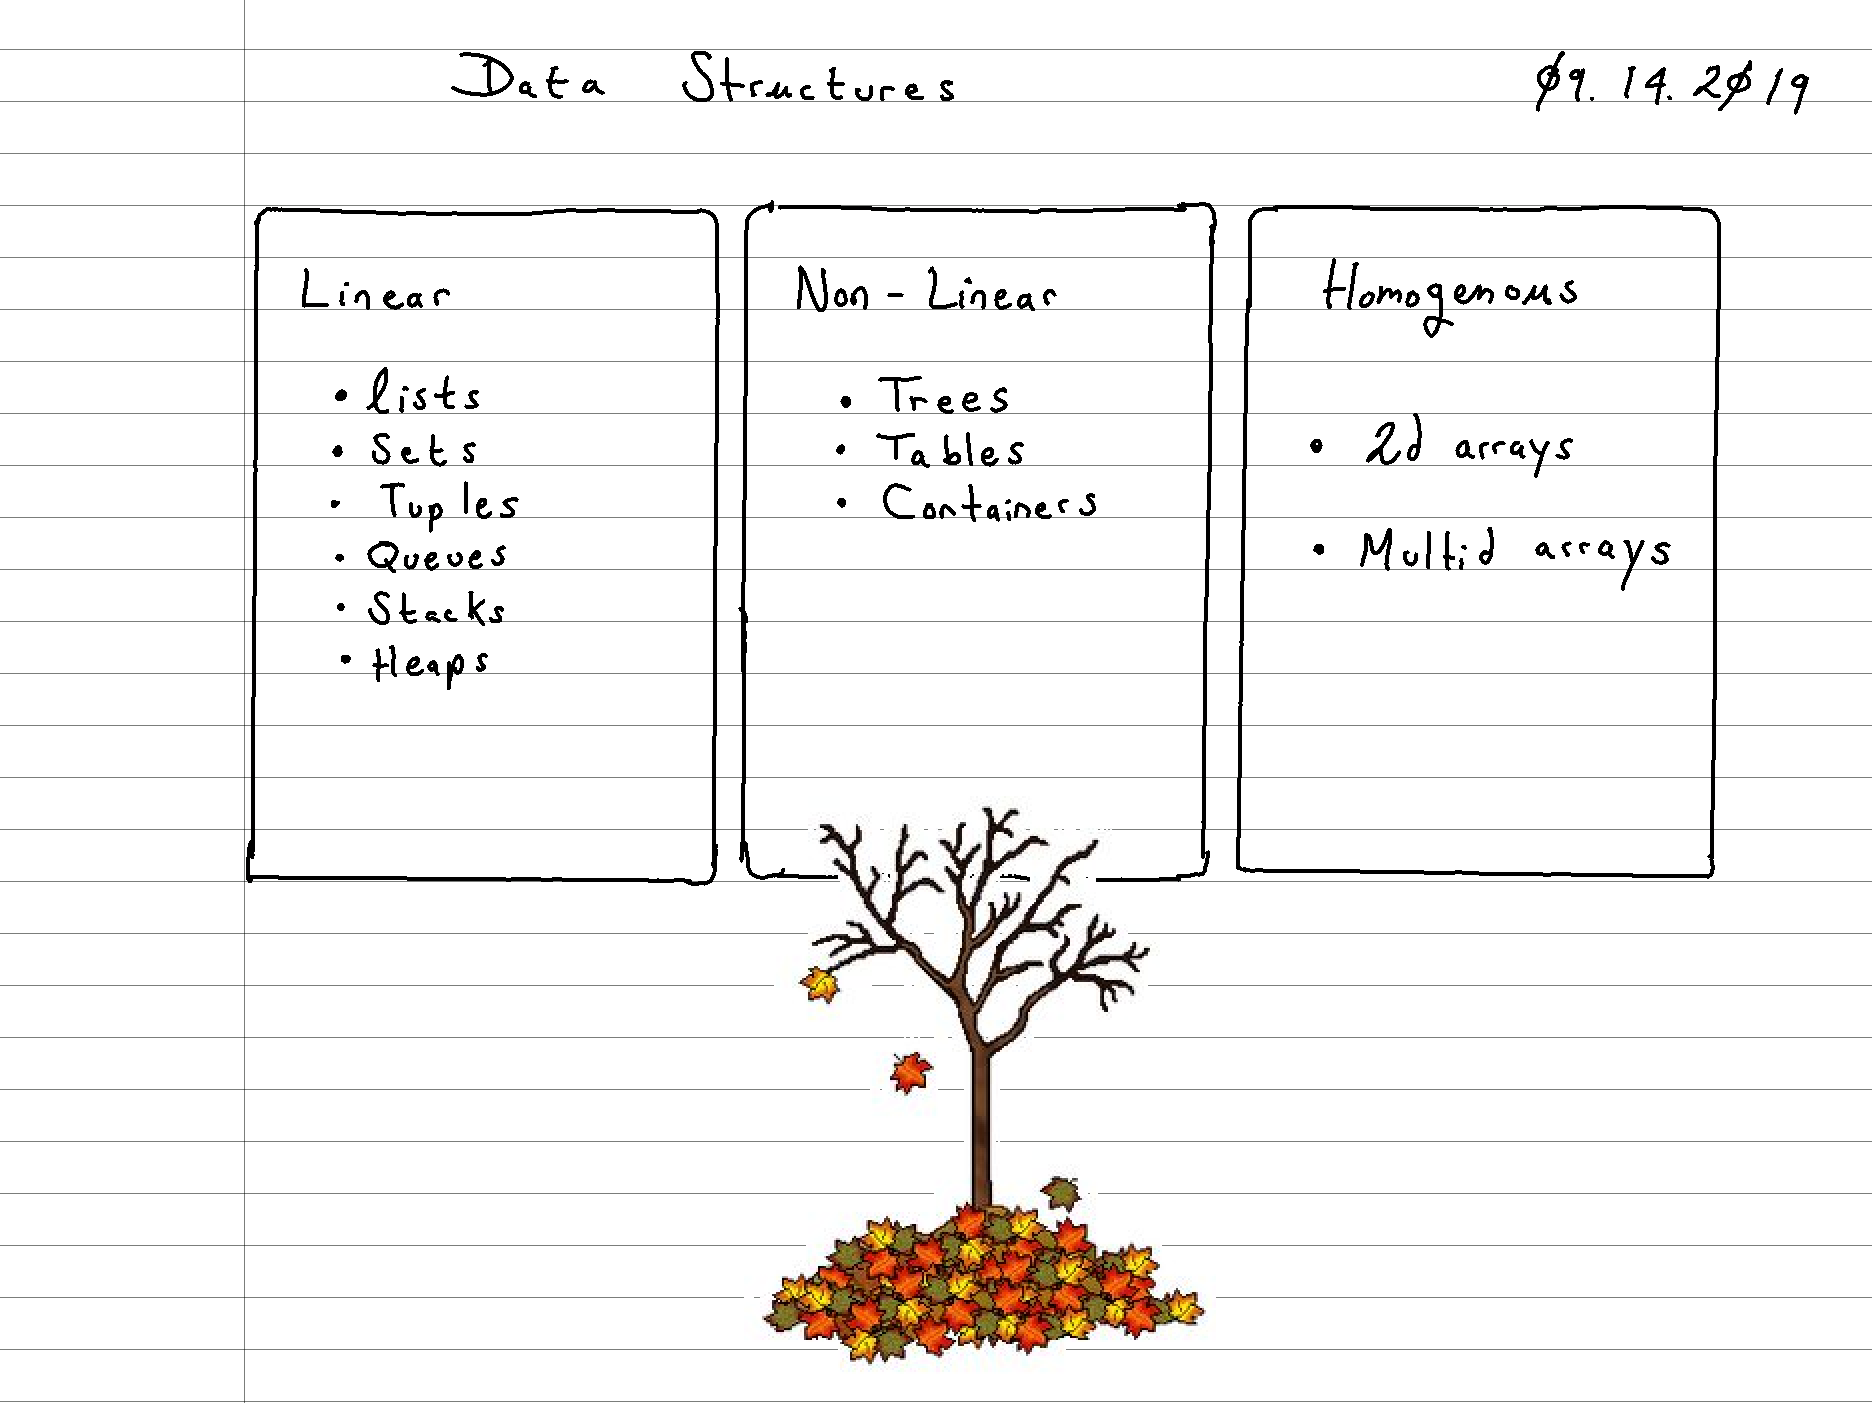 Data Structures
09.14.2019
Linear
• lists
• Sets
• Tuples
• Queues
• Stacks
• Heaps
Non-Linear
• Trees
• Tables
• Containers
Homogenous
• 2d arrays
• Multid arrays